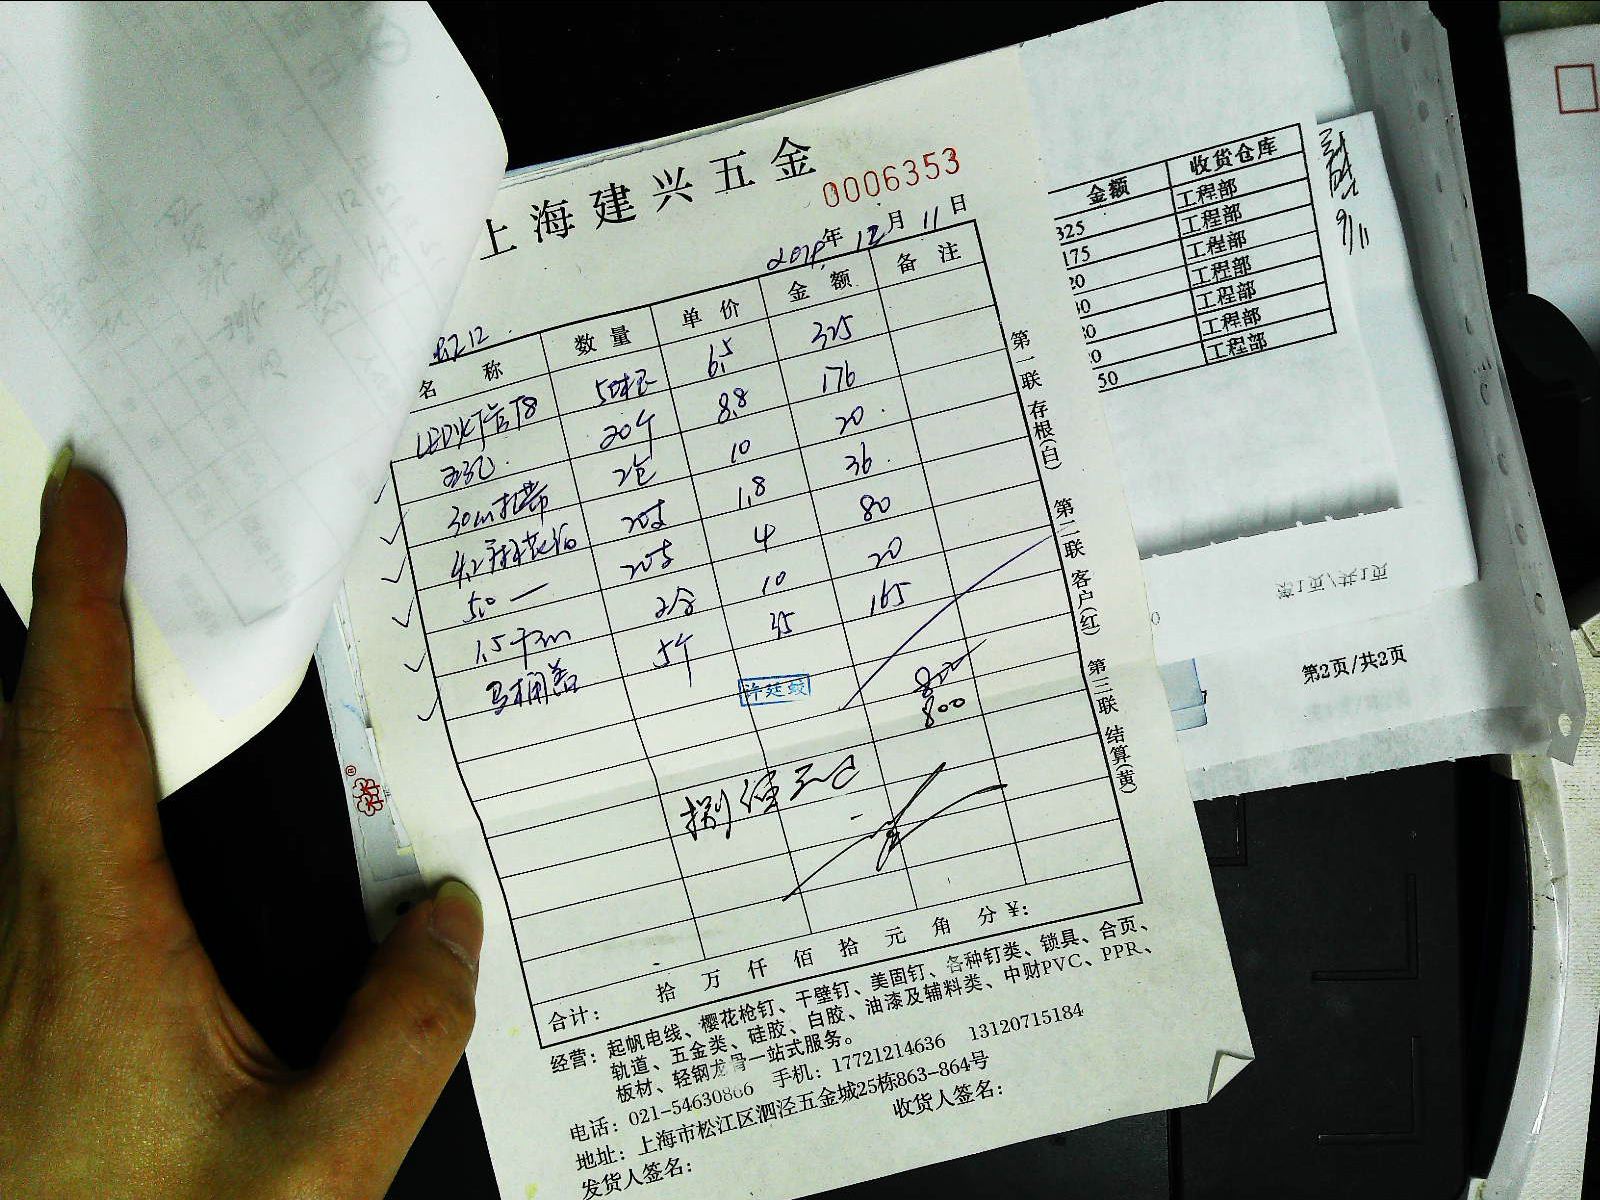 上海建兴五金
0006353
年 12 月 11 日
名称 数量 单价 金额 备注
LED灯管T8 50根 6.5 325
五孔 20个 8.8 176
30cm扎带 2包 10 20
20支 1.8 36
5.0 — 20支 4 80
10 20
马桶盖 5个 165
许廷蛟
800
捌佰元
合计： 拾 万 仟 佰 拾 元 角 分 ¥:
经营：起帆电线、樱花枪钉、干壁钉、美固钉、各种钉类、锁具、合页、
轨道、五金类、硅胶、白胶、油漆及辅料类、中财PVC、PPR、
板材、轻钢龙骨一站式服务。
电话：021-54630866 手机：17721214636 13120715184
地址：上海市松江区泗泾五金城25栋863-864号
发货人签名： 收货人签名：
第一联 存根(白)
第二联 客户(红)
第三联 结算(黄)
金额 收货仓库
325 工程部
175 工程部
20 工程部
工程部
工程部
工程部
50 工程部
9/11
第1页/共1页
第2页/共2页